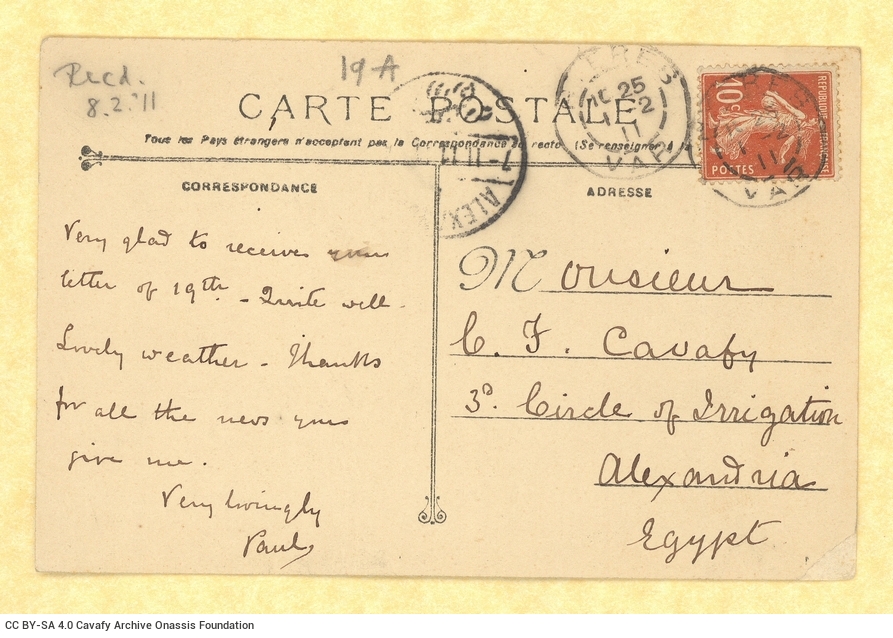 Recd.
8.2.'11
19 A
CARTE POSTALE
Tous les Pays étrangers n'acceptant pas la Correspondance au recto (Se renseigner à la
CORRESPONDANCE
ADRESSE
HYERES
25
1 2
11
VAR
10c
REPUBLIQUE FRANÇAISE
POSTES
VAR
7-II 11
ALEX
Very glad to receive your
letter of 19th - Quite well -
Lovely weather - Thanks
for all the news you
give me.
Very lovingly
Paul
Monsieur
C. F. Cavafy
3D Circle of Irrigation
Alexandria
Egypt
CC BY-SA 4.0 Cavafy Archive Onassis Foundation